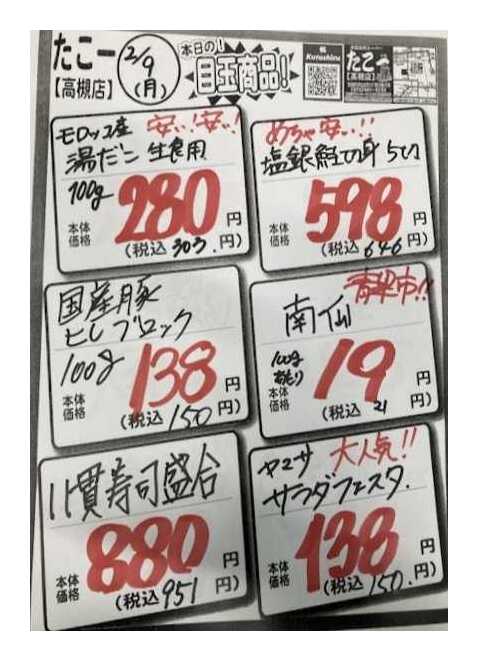 たこー
【高槻店】
2/9
(月)
本日の!
目玉商品!
Kurashiru
たこー
【高槻店】
モロッコ産 安い!安い!
湯だこ 生食用
100g 280円
本体価格
(税込 303.円)
めちゃ安い!!
塩銀鮭切身 5切
598円
本体価格
(税込 646円)
国産豚
ヒレブロック
100g 138円
本体価格
(税込 150円)
青果市!!
100g
19円
本体価格
(税込 21円)
11貫寿司盛合
880円
本体価格
(税込 951円)
ヤマサ 大人気!!
サラダフェスタ.
138円
本体価格
(税込 150.円)